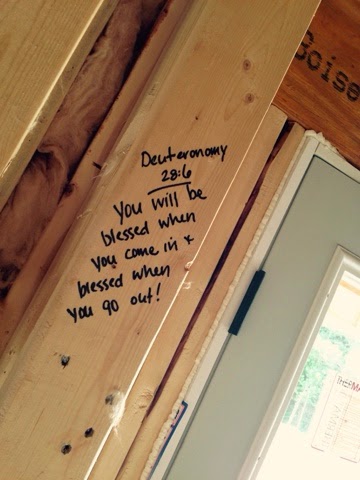 Deuteronomy
28:6
You will be
blessed when
you come in +
blessed when
you go out!
Boise
THERMA